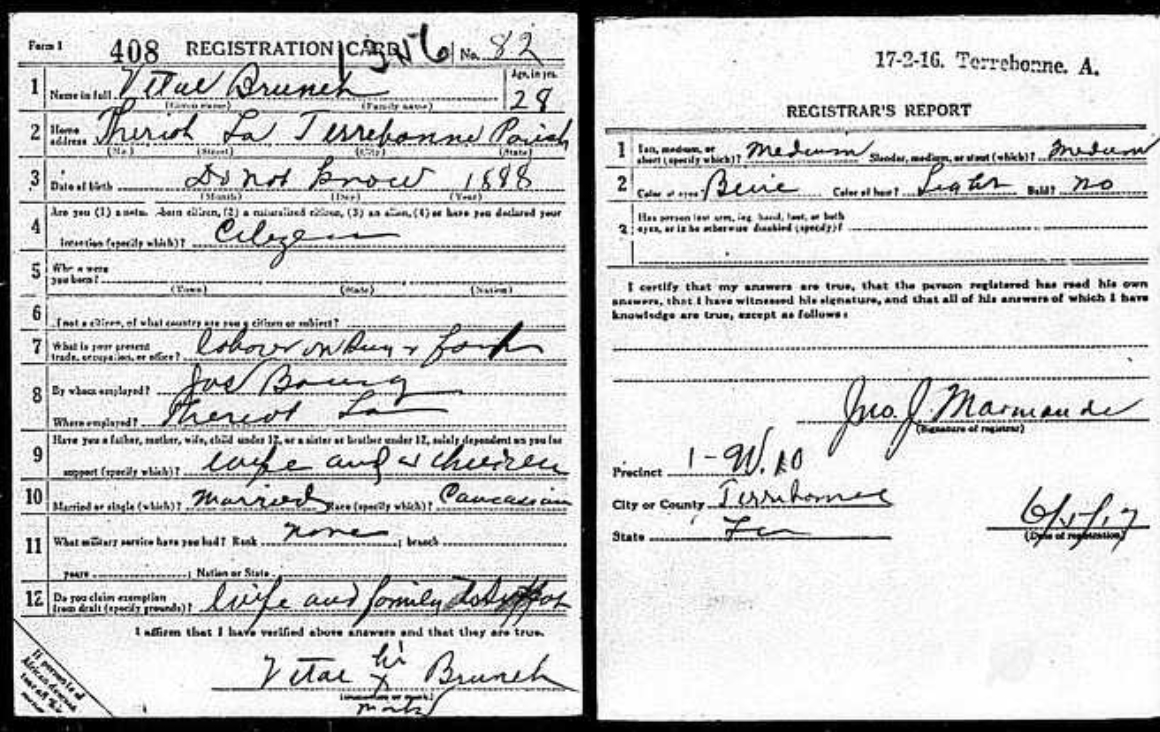 Form 1 408 REGISTRATION CARD No. 82
1 Name in full Vitae Bruneh Age, in yrs. 28
(Given name) (Family name)
2 Home address Theriot La Terrebonne Parish
(No.) (Street) (City) (State)
3 Date of birth Do not know 1888
(Month) (Day) (Year)
4 Are you (1) a natural-born citizen, (2) a naturalized citizen, (3) an alien, (4) or have you declared your
intention (specify which)? Citizen
5 Where were you born?
(Town) (State) (Nation)
6 If not a citizen, of what country are you a citizen or subject?
7 What is your present trade, occupation, or office? laborer on
8 By whom employed? Jos Bourg
Where employed? Theriot La
9 Have you a father, mother, wife, child under 12, or a sister or brother under 12, solely dependent on you for
support (specify which)? wife and children
10 Married or single (which)? Married Race (specify which)? Caucasian
11 What military service have you had? Rank none ; branch
years ; Nation or State
12 Do you claim exemption from draft (specify grounds)? Wife and family to
I affirm that I have verified above answers and that they are true.
Vitae his x Bruneh
(Signature or mark)
mark
If person is of African descent, tear off this corner
17-2-16. Terrebonne. A.
REGISTRAR'S REPORT
1 Tall, medium, or short (specify which)? Medium Slender, medium, or stout (which)? Medium
2 Color of eyes Blue Color of hair? Light Bald? No
3 Has person lost arm, leg, hand, foot, or both
eyes, or is he otherwise disabled (specify)?
I certify that my answers are true, that the person registered has read his own
answers, that I have witnessed his signature, and that all of his answers of which I have
knowledge are true, except as follows:
Jno. J. Marmande
(Signature of registrar)
Precinct 1-W. 10
City or County Terrebonne
State La
6/5/17
(Date of registration)